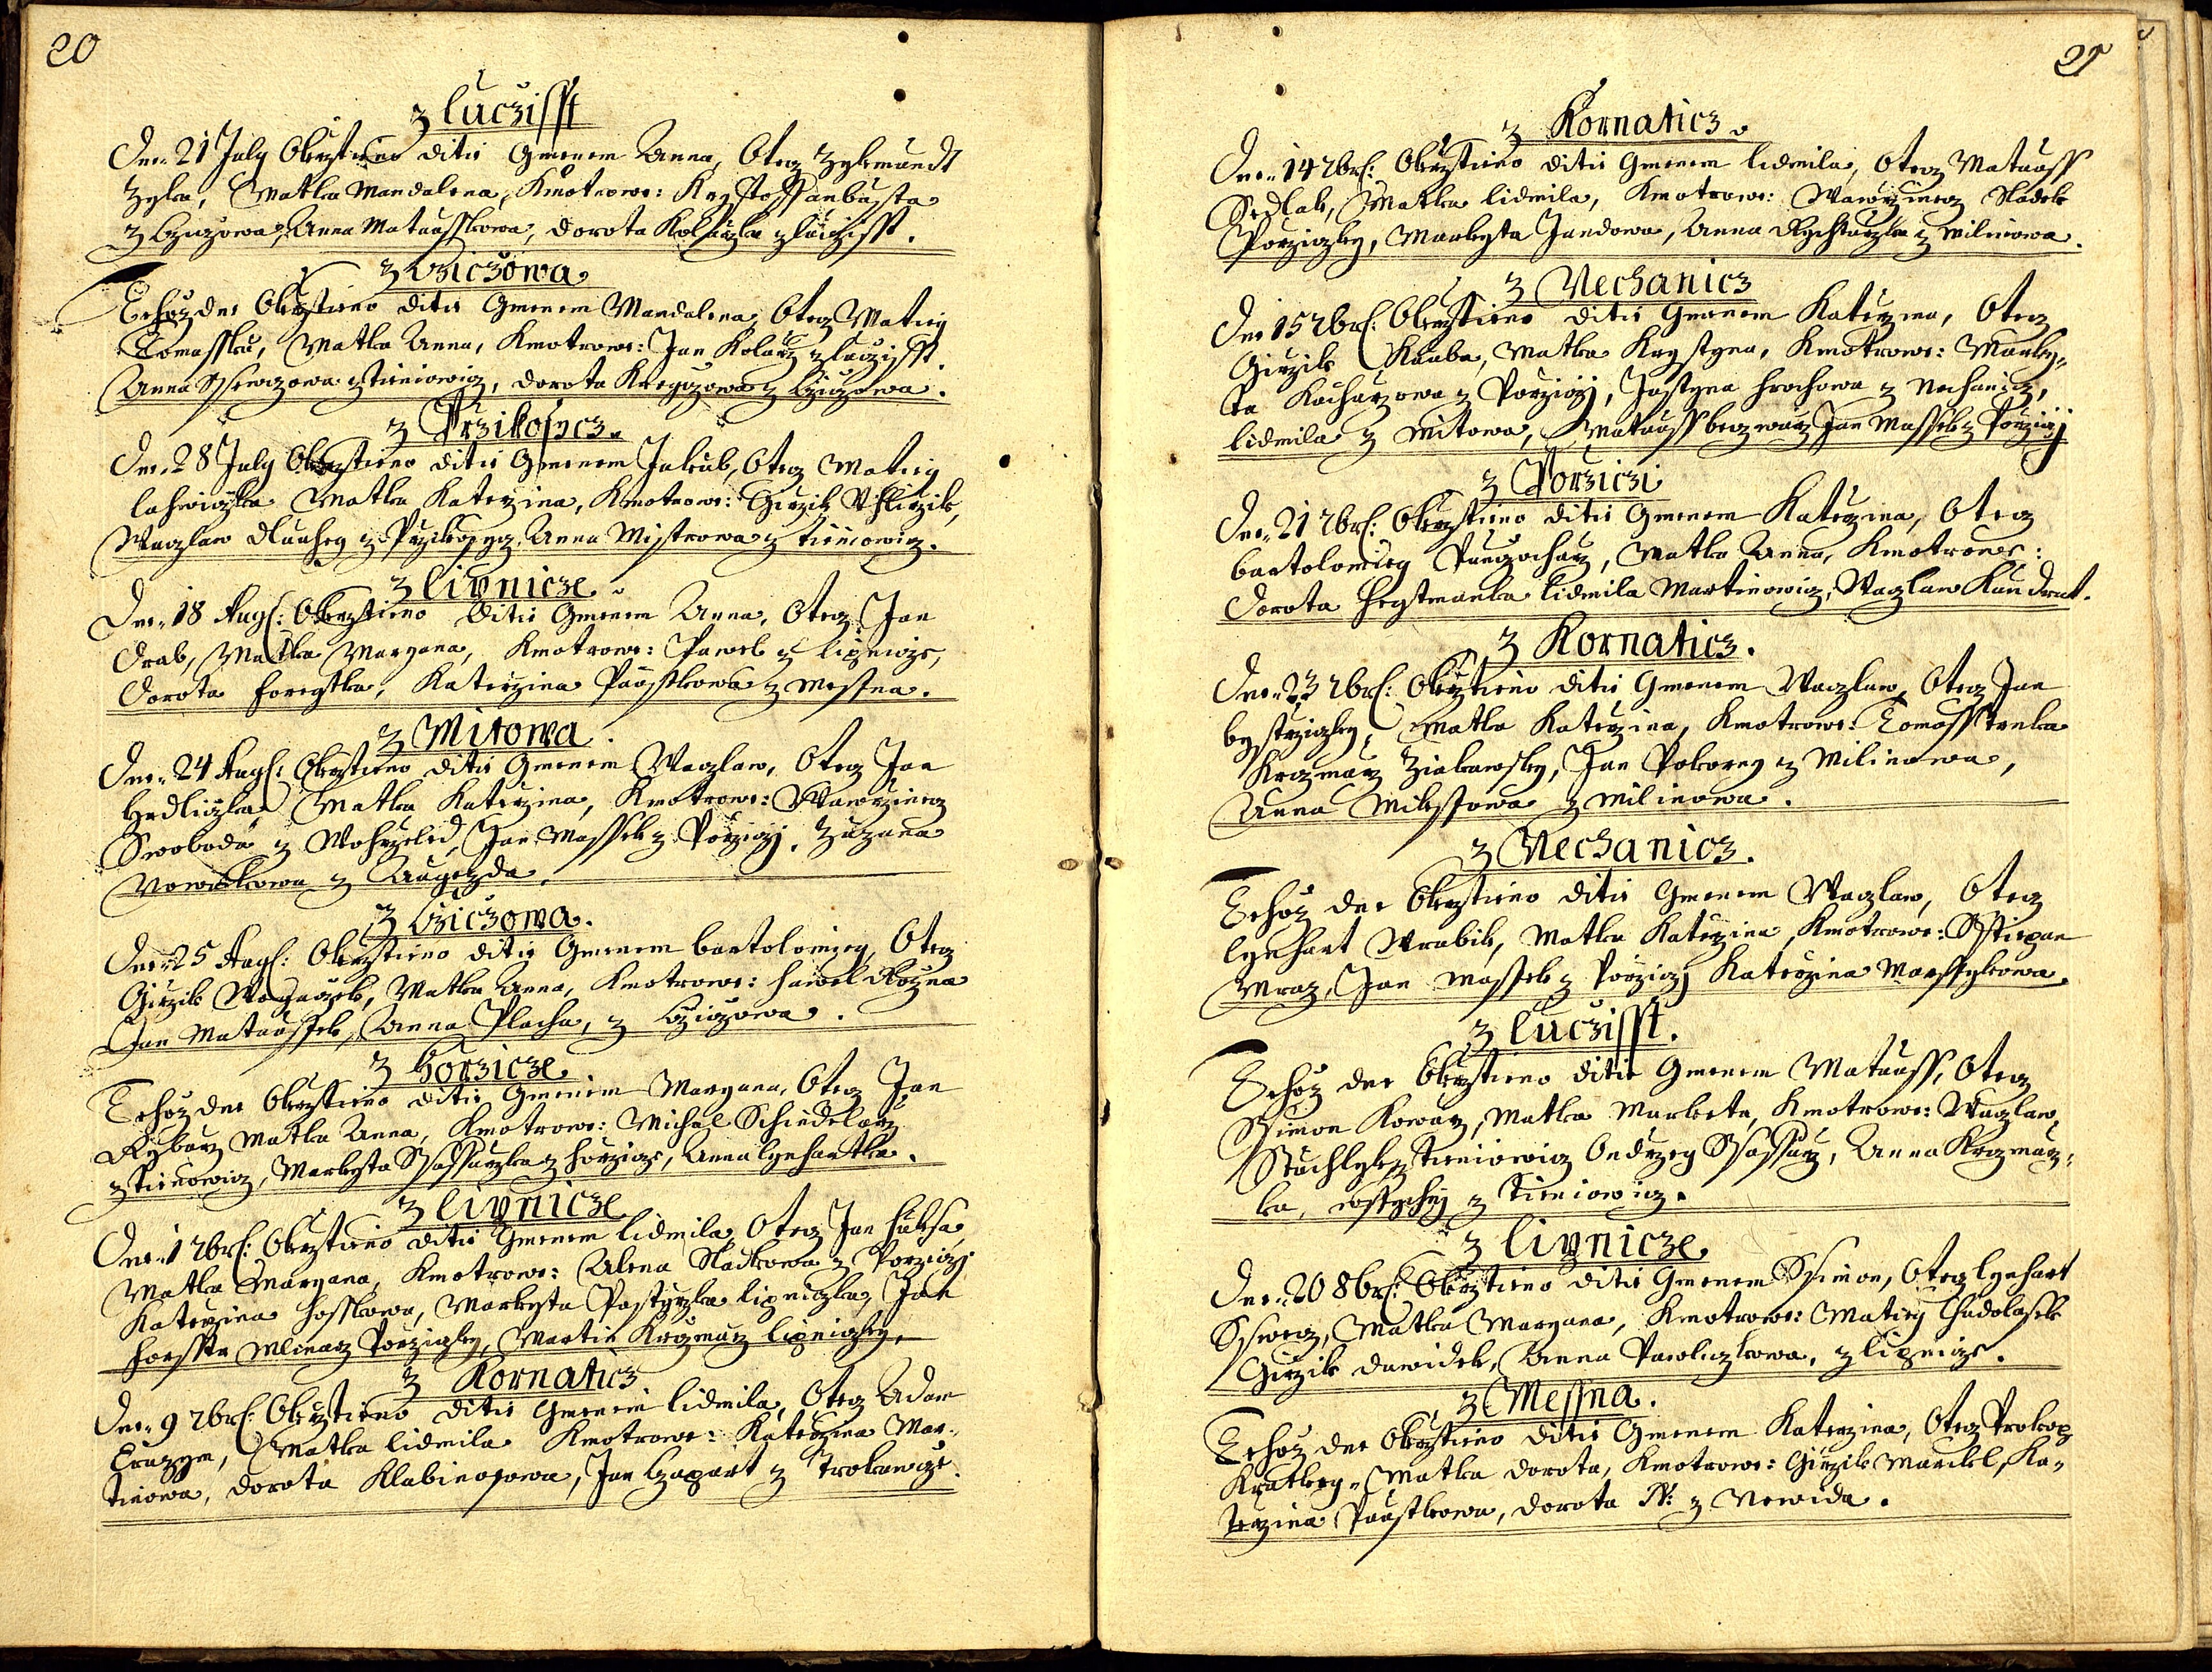 20
z Luczisst
Dne 21 July Okrztieno ditie Gmenem Anna, Otecz Zykmundt
Zyka, Matka Mandalena, Kmotrowe: Krystoff
z Cziczowa, Anna Matausskowa, Dorota Kolarzka z Lucżisst.
z Cziczowa
Tehoz dne Okrztieno ditie Gmenem Mandalena, Otecz Matieg
Tomassku, Matka Anna, Kmotrowe: Jan Kolarz z Lucziisst.
Anna Ssewczowa z Tieniowicz, Dorota z Cziczowa.
z Przikosycz.
Dne 28 July Okrztieno ditie Gmenem Jakub, Otecz Matieg
Matka Katerzina, Kmotrowe: Girzik Uhlirzik,
Waczlaw Dlauheg z Przikosycz. Anna Mistrowa z Tieniowicz.
z Lipnicze.
Dne 18 Aug: Okrztieno Ditie Gmenem Anna, Otecz Jan
Drab, Matka Maryana, Kmotrowe: Pawel z Lipnicze,
Dorota Foregtka, Katerzina Paustkowa z Messna.
z Mitowa
Dne 24 Aug: Okrztieno ditie Gmenem Waczlaw, Otecz Jan
Hrdliczka, Matka Katerzina, Kmotrowe: Wawrzinecz
Swoboda z Wohrzeled, Jan Massek z Porziczj, Zuzana
Nowakowa z Augezda.
z Cziczowa.
Dne 25 Aug: Okrztieno ditie Gmenem Bartolomieg, Otecz
Girzik Wognaczek, Matka Anna, Kmotrowe: Hawel
Jan Mataussek, Anna Placha, z Cziczowa.
z Horzicze.
Tehoz dne Okrztieno ditie Gmenem Maryana, Otecz Jan
Rybarz Matka Anna, Kmotrowe: Michal Schindelarz
z Tieniowicz, Markyta Ssaffarzka z Horzicze, Anna Lynhartka.
z Lipnicze
Dne 1 7br: Okrztieno ditie Gmenem Lidmila, Otecz Jan Huksa,
Matka Maryana, Kmotrowe: Alena Sladkowa z Porziczj
Katerzina Hosskowa, Markyta Pastyrzka Lipniczka, Jan
Forsstr Mlinarz Porziczky, Martin Krczmarz Lipniczky.
z Kornaticz
Dne 9 7br: Okrztieno ditie Gmenem Lidmila, Otecz Adam
Erazym, Matka Lidmila Kmotrowe: Katerzina Mar-
tinowa, Dorota Klabinosowa, Jan Czapart z Trokawcze.
21
z Kornaticz.
Dne 14 7br: Okrztieno ditie Gmenem Lidmila, Otecz Matauss
Sedlak, Matka Lidmila, Kmotrowe: Wawrzinecz Sladek
Porziczky, Markyta Jandowa, Anna Rychtarzka z Milinowa.
z Nechanicz
Dne 15 7br: Okrztieno ditie Gmenem Katerzina, Otecz
Girzik Kuuba, Matka Krystyna, Kmotrowe: Marky-
ta Kucharzowa z Porziczj, Justyna Hrochowa z Nechanicz,
Lidmila z Mitowa, Matauss Jan Massek z Porziczj
z Porziczi
Dne 21 7br: Okrztieno ditie Gmenem Katerzina, Otecz
Bartolomieg Punczocharz, Matka Anna, Kmotrowe:
Dorota Hegtmanka Lidmila Martinowicz, Waczlaw Kundrat.
z Kornaticz.
Dne 23 7br: Okrztieno ditie Gmenem Waczlaw, Otecz Jan
Bystrziczky, Matka Katerzina, Kmotrowe: Tomass Trnka
Krczmarz Ziakawsky, Jan Pokorny z Milinowa,
Anna Mikssowa z Milinowa.
z Nechanicz.
Tehoz dne Okrztieno ditie Gmenem Waczlaw, Otecz
Lynhart Wrabik, Matka Katerzina, Kmotrowe: Sstiepan
Mraz, Jan Massek z Porziczj Katerzina Marssykowa.
z Lucziisst.
Tehoz dne Okrztieno ditie Gmenem Matauss, Otecz
Ssimon Kowarz, Matka Marketa, Kmotrowe: Waczlaw
Stuchlyk z Tieniowicz Ondrzeg Ssaffarz, Anna Krczmarz-
ka, wssychnj z Tieniowicz.
z Lipnicze
Dne 20 8br: Okrztieno ditie Gmenem Ssimon, Otecz Lynhart
Sswecz, Matka Maryana, Kmotrowe: Matieg Chudolasek
Girzik Dawidek, Anna Pawliczkowa, z Lipnicze.
z Messna.
Tehoz dne Okrztieno ditie Gmenem Katerzina, Otecz Prokop
Kratkey, Matka Dorota, Kmotrowe: Girzik Marekl, Ka-
terzina Paustkowa, Dorota N: z Newida.